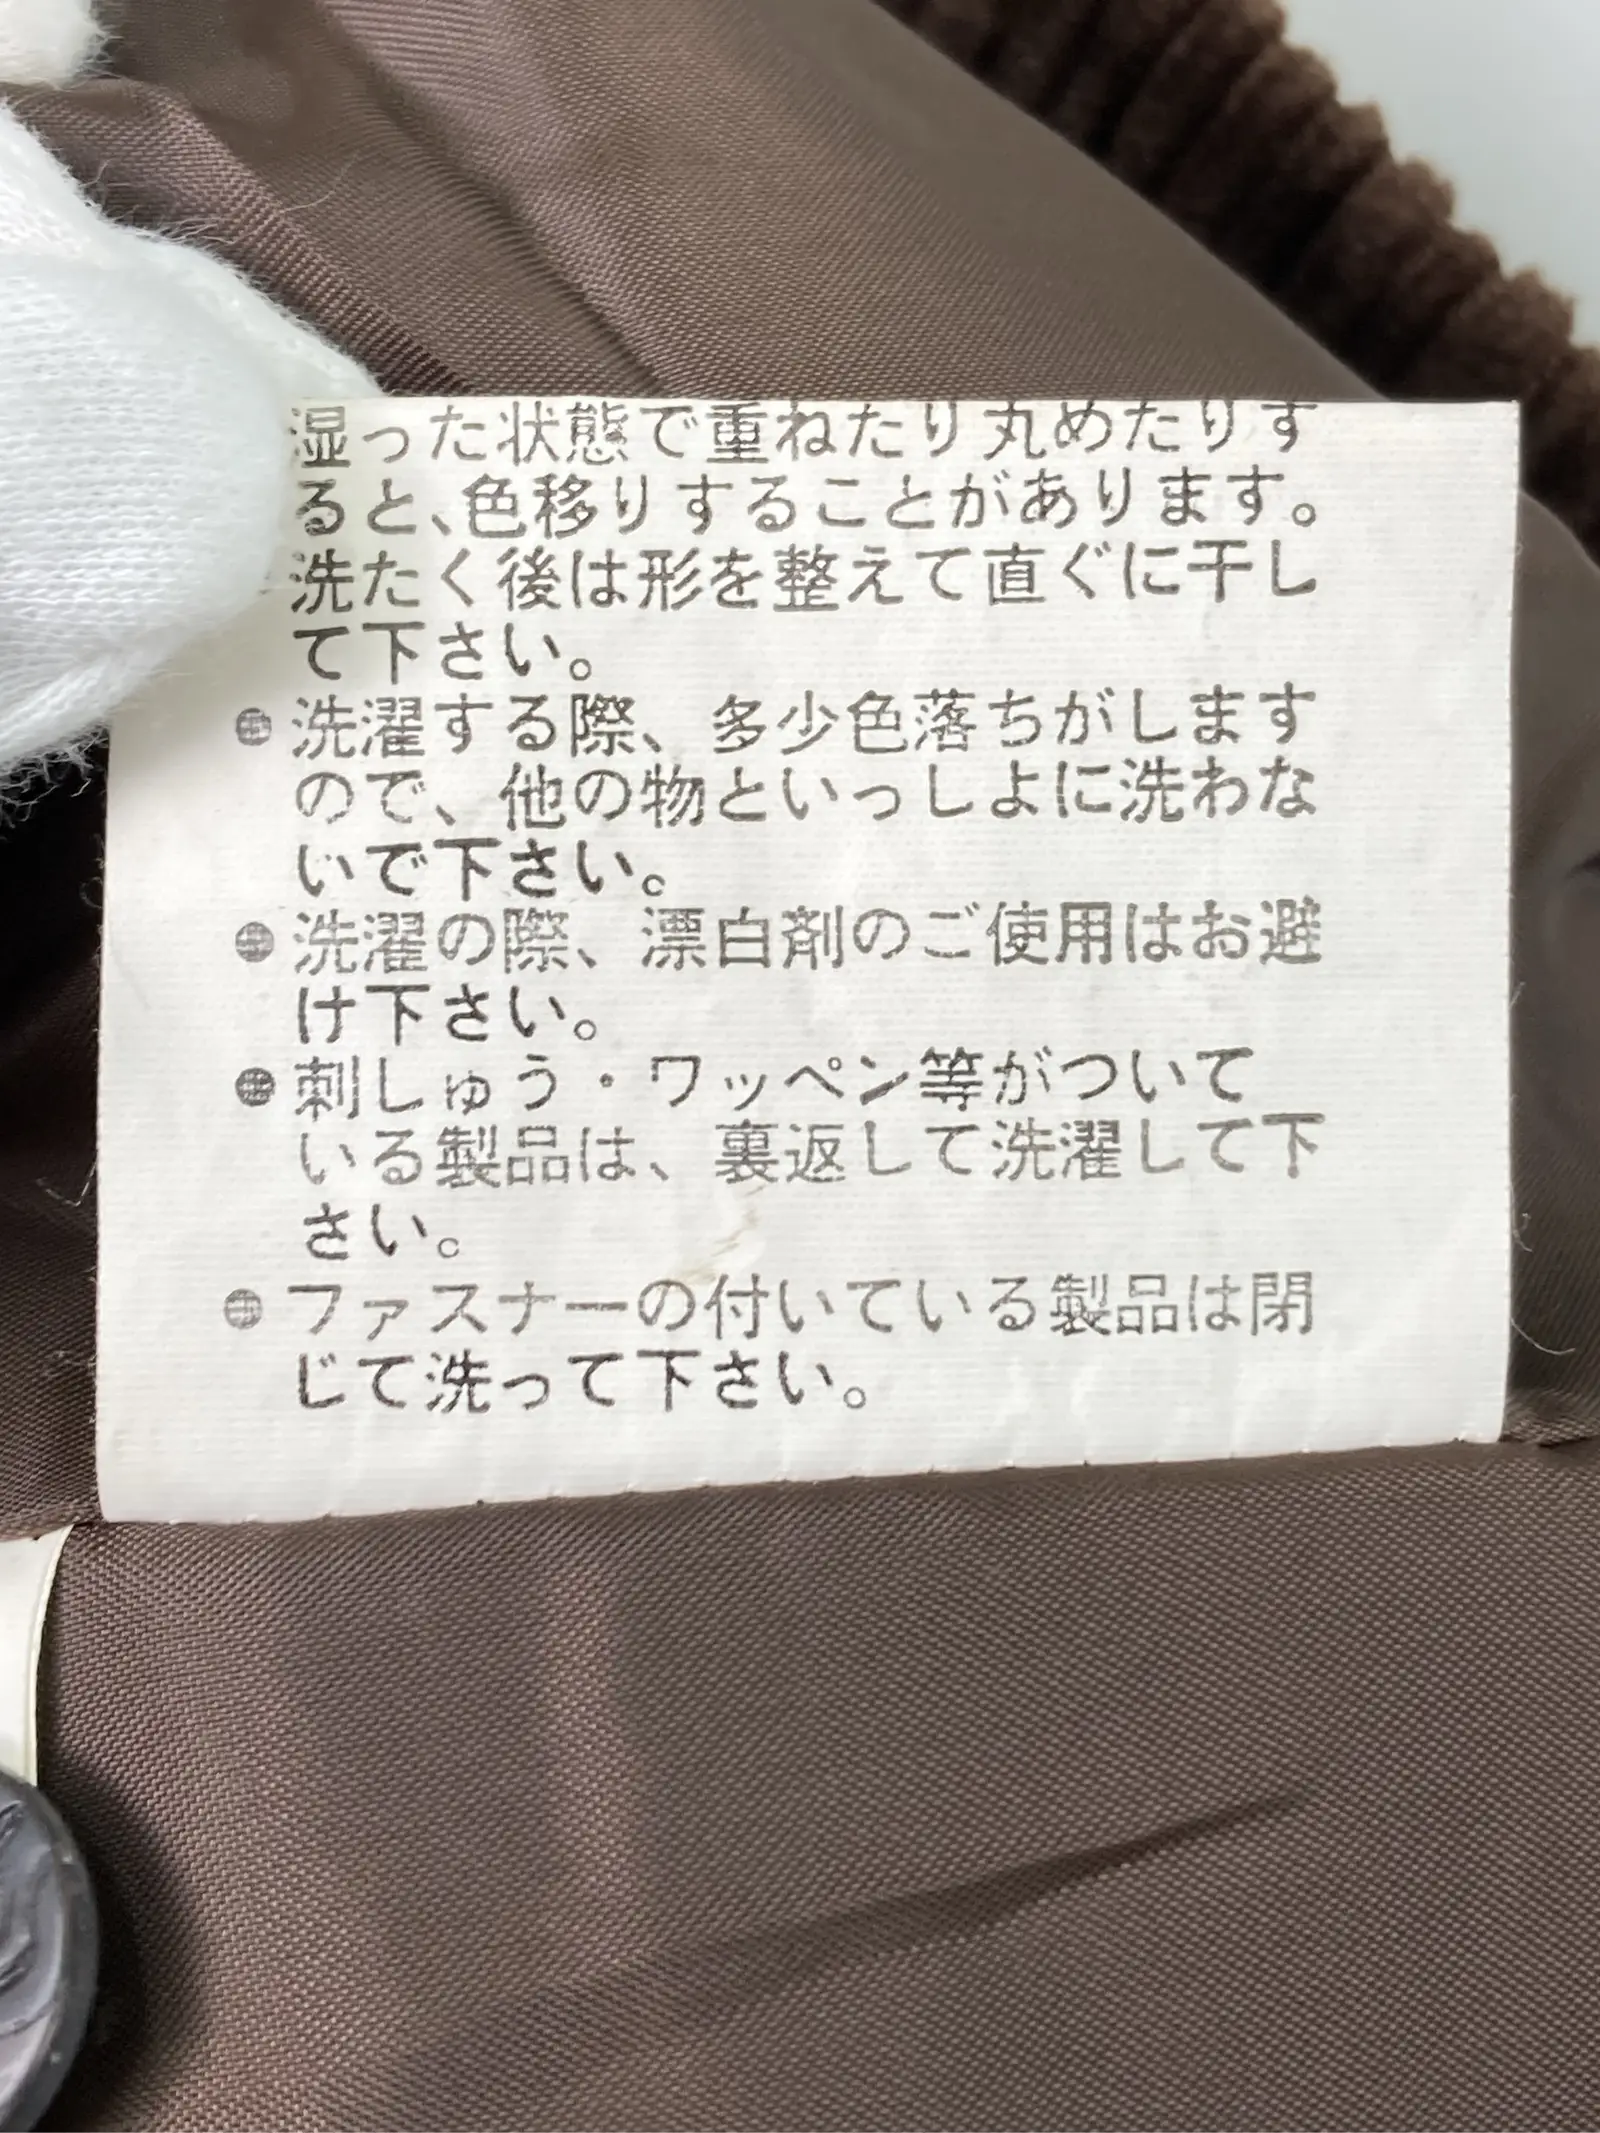 湿った状態で重ねたり丸めたりす
ると、色移りすることがあります。
洗たく後は形を整えて直ぐに干し
て下さい。
●洗濯する際、多少色落ちがします
ので、他の物といっしよに洗わな
いで下さい。
●洗濯の際、漂白剤のご使用はお避
け下さい。
●刺しゅう・ワッペン等がついて
いる製品は、裏返して洗濯して下
さい。
●ファスナーの付いている製品は閉
じて洗って下さい。